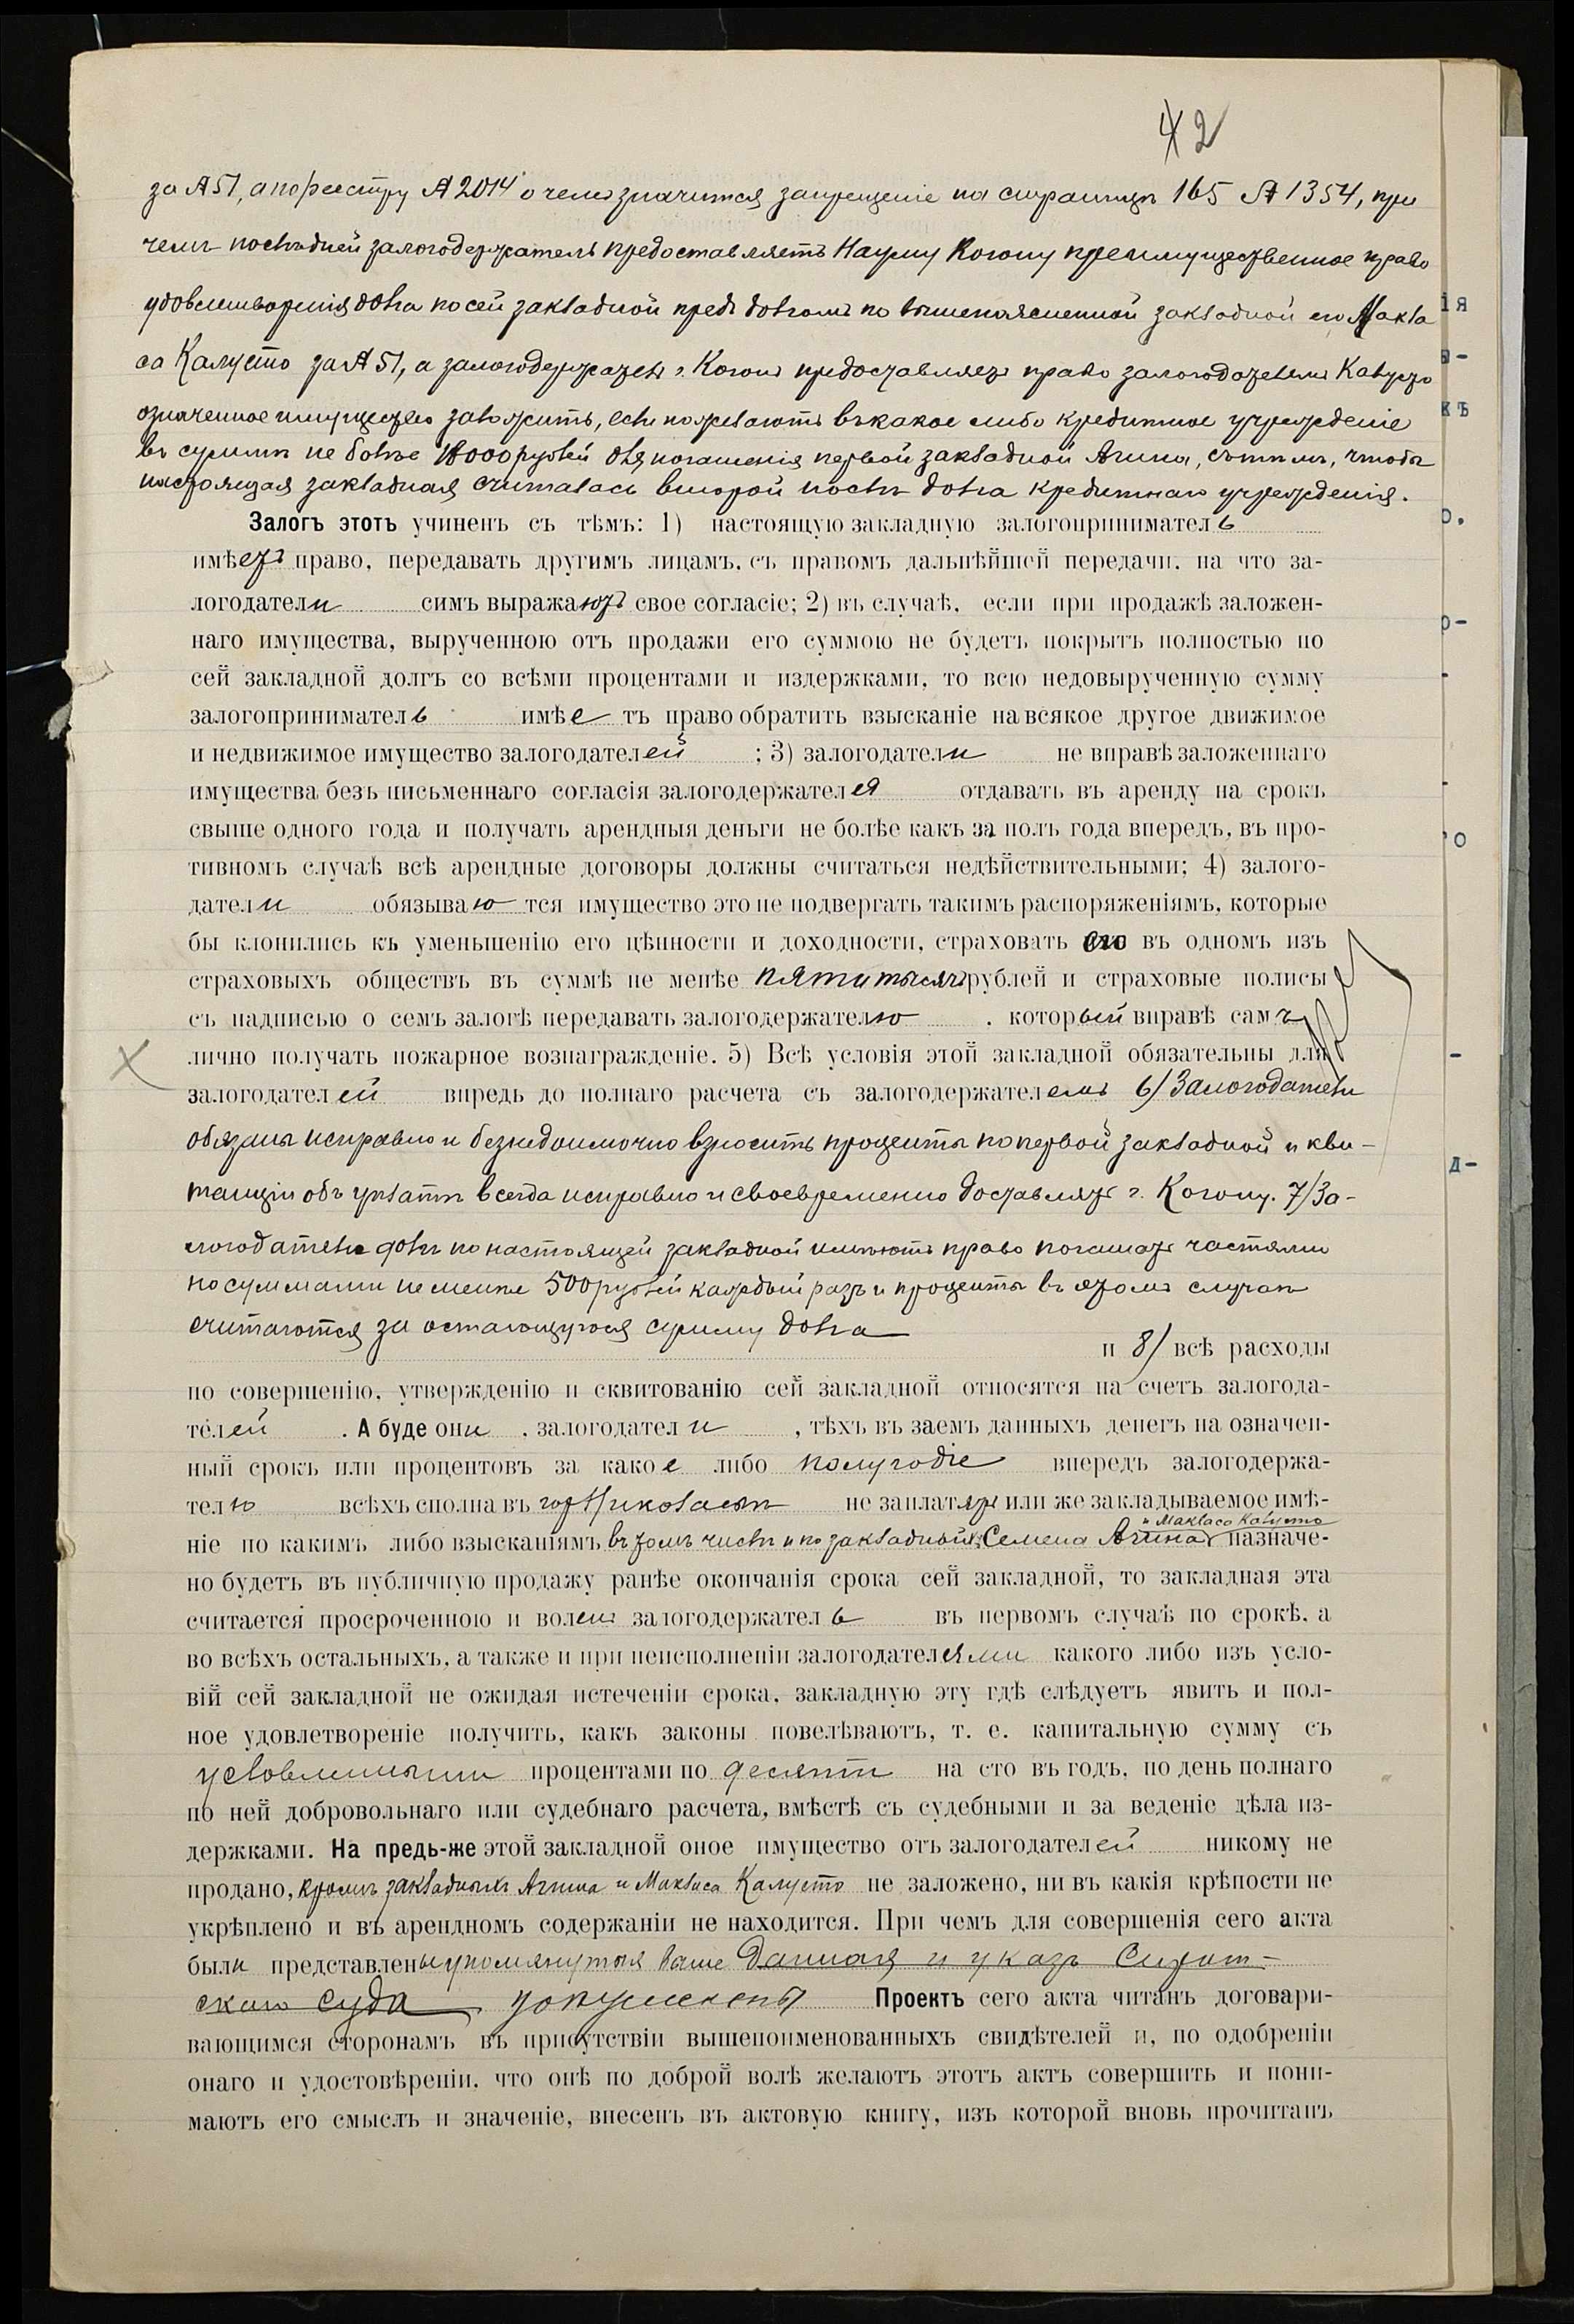 42
за № 51, а по реестру № 2014 о чемъ значится запрещеніе на страницѣ 165 № 1354, при
чемъ послѣдней залогодержатель предоставляетъ Науму Когону преимущественное право
удовлетворенія долга по сей закладной предъ долгомъ по вышепоясненной закладной его Макла
са Калусто за № 51, а залогодержатель г. Когонъ предоставляетъ право залогодателямъ Калусто
означенное имущество заложить, если пожелаютъ въ какое либо кредитное учрежденіе
въ суммѣ не болѣе 18000 рублей для погашенія первой закладной Агина, съ тѣмъ, чтобы
настоящая закладная считалась второй послѣ долга кредитнаго учрежденія.
Залогъ этотъ учиненъ съ тѣмъ: 1) настоящую закладную залогоприниматель
имѣетъ право, передавать другимъ лицамъ, съ правомъ дальнѣйшей передачи, на что за-
логодатели симъ выражаютъ свое согласіе; 2) въ случаѣ, если при продажѣ заложен-
наго имущества, вырученною отъ продажи его суммою не будетъ покрытъ полностью по
сей закладной долгъ со всѣми процентами и издержками, то всю недовырученную сумму
залогоприниматель имѣетъ право обратить взысканіе на всякое другое движимое
и недвижимое имущество залогодателей ; 3) залогодатели не вправѣ заложеннаго
имущества безъ письменнаго согласія залогодержателя отдавать въ аренду на срокъ
свыше одного года и получать арендныя деньги не болѣе какъ за полъ года впередъ, въ про-
тивномъ случаѣ всѣ арендные договоры должны считаться недѣйствительными; 4) залого-
датели обязываются имущество это не подвергать такимъ распоряженіямъ, которые
бы клонились къ уменьшенію его цѣнности и доходности, страховать его въ одномъ изъ
страховыхъ обществъ въ суммѣ не менѣе пяти тысячъ рублей и страховые полисы
съ надписью о семъ залогѣ передавать залогодержателю . который вправѣ самъ
лично получать пожарное вознагражденіе. 5) Всѣ условія этой закладной обязательны для
залогодателей впредь до полнаго расчета съ залогодержателемъ 6/ Залогодатели
обязаны исправно и безнедоимочно взносить проценты по первой закладной и кви-
танціи объ уплатѣ всегда исправно и своевременно доставлять г. Когону. 7/ За-
логодатели долгъ по настоящей закладной имѣютъ право погашать частями
но суммами не менѣе 500 рублей каждый разъ и проценты въ этомъ случаѣ
считаются за остающуюся сумму долга
и 8/ всѣ расходы
по совершенію, утвержденію и сквитованію сей закладной относятся на счетъ залогода-
телей . А буде они , залогодатели , тѣхъ въ заемъ данныхъ денегъ на означен-
ный срокъ или процентовъ за какое либо полугодіе впередъ залогодержа-
телю всѣхъ сполна въ гор Николаевѣ не заплатятъ или же закладываемое имѣ-
и Макласа Калусто
ніе по какимъ либо взысканіямъ въ томъ числѣ и по закладной Семена Агина назначе-
но будетъ въ публичную продажу ранѣе окончанія срока сей закладной, то закладная эта
считается просроченною и воленъ залогодержатель въ первомъ случаѣ по срокѣ, а
во всѣхъ остальныхъ, а также и при неисполненіи залогодателями какого либо изъ усло-
вій сей закладной не ожидая истеченіи срока, закладную эту гдѣ слѣдуетъ явить и пол-
ное удовлетвореніе получить, какъ законы повелѣваютъ, т. е. капитальную сумму съ
условленными процентами по десяти на сто въ годъ, по день полнаго
по ней добровольнаго или судебнаго расчета, вмѣстѣ съ судебными и за веденіе дѣла из-
держками. На предь-же этой закладной оное имущество отъ залогодателей никому не
продано, кромѣ закладныхъ Агина и Макласа Калусто не заложено, ни въ какія крѣпости не
укрѣплено и въ арендномъ содержаніи не находится. При чемъ для совершенія сего акта
были представлены упомянутыя выше данная и указъ Сирот-
скаго суда документы Проектъ сего акта читанъ договари-
вающимся сторонамъ въ присутствіи вышепоименованныхъ свидѣтелей и, по одобреніи
онаго и удостовѣреніи, что онѣ по доброй волѣ желаютъ этотъ актъ совершить и пони-
маютъ его смыслъ и значеніе, внесенъ въ актовую книгу, изъ которой вновь прочитанъ